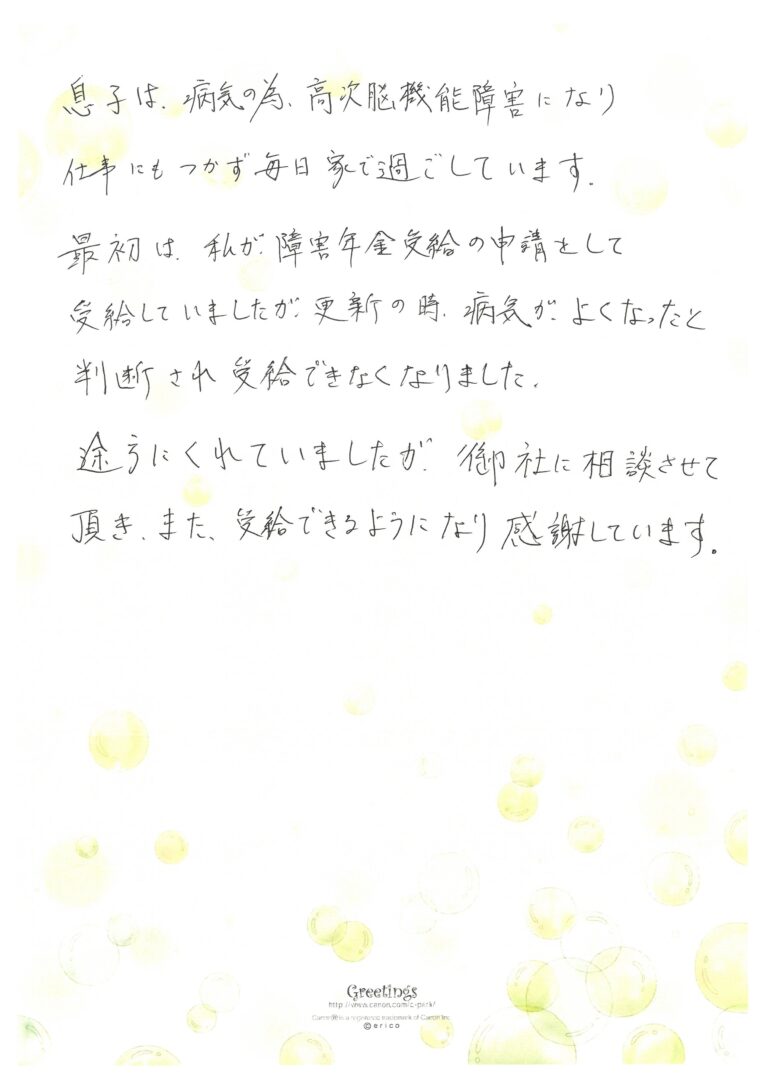 息子は、病気の為、高次脳機能障害になり
仕事にもつかず毎日家で過ごしています。
最初は、私が障害年金受給の申請をして
受給していましたが、更新の時、病気が、よくなったと
判断され受給できなくなりました。
途方にくれていましたが、御社に相談させて
頂き、また、受給できるようになり感謝しています。
Greetings
http://www.canon.com/c-park/
Canon® is a registered trademark of Canon Inc.
©erico